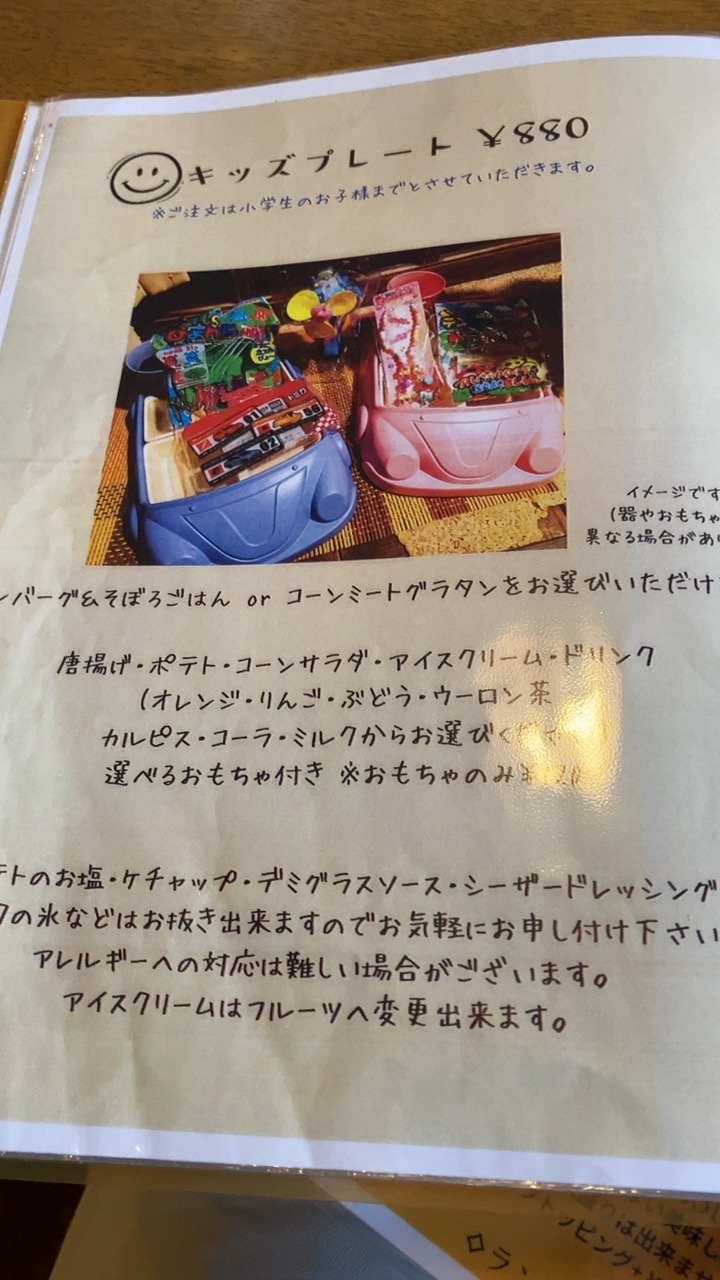 キッズプレート ¥880
※ご注文は小学生のお子様までとさせていただきます。
トミカ
01
02
イメージです
(器やおもちゃ
異なる場合があ
ンバーグ&そぼろごはん or コーンミートグラタンをお選びいただけ
唐揚げ・ポテト・コーンサラダ・アイスクリーム・ドリンク
(オレンジ・りんご・ぶどう・ウーロン茶
カルピス・コーラ・ミルクからお選びく
選べるおもちゃ付き ※おもちゃのみ
テトのお塩・ケチャップ・デミグラスソース・シーザードレッシング
クの氷などはお抜き出来ますのでお気軽にお申し付け下さい
アレルギーへの対応は難しい場合がございます。
アイスクリームはフルーツへ変更出来ます。
美味し
は出来ませ
トッピング+
ロラ、